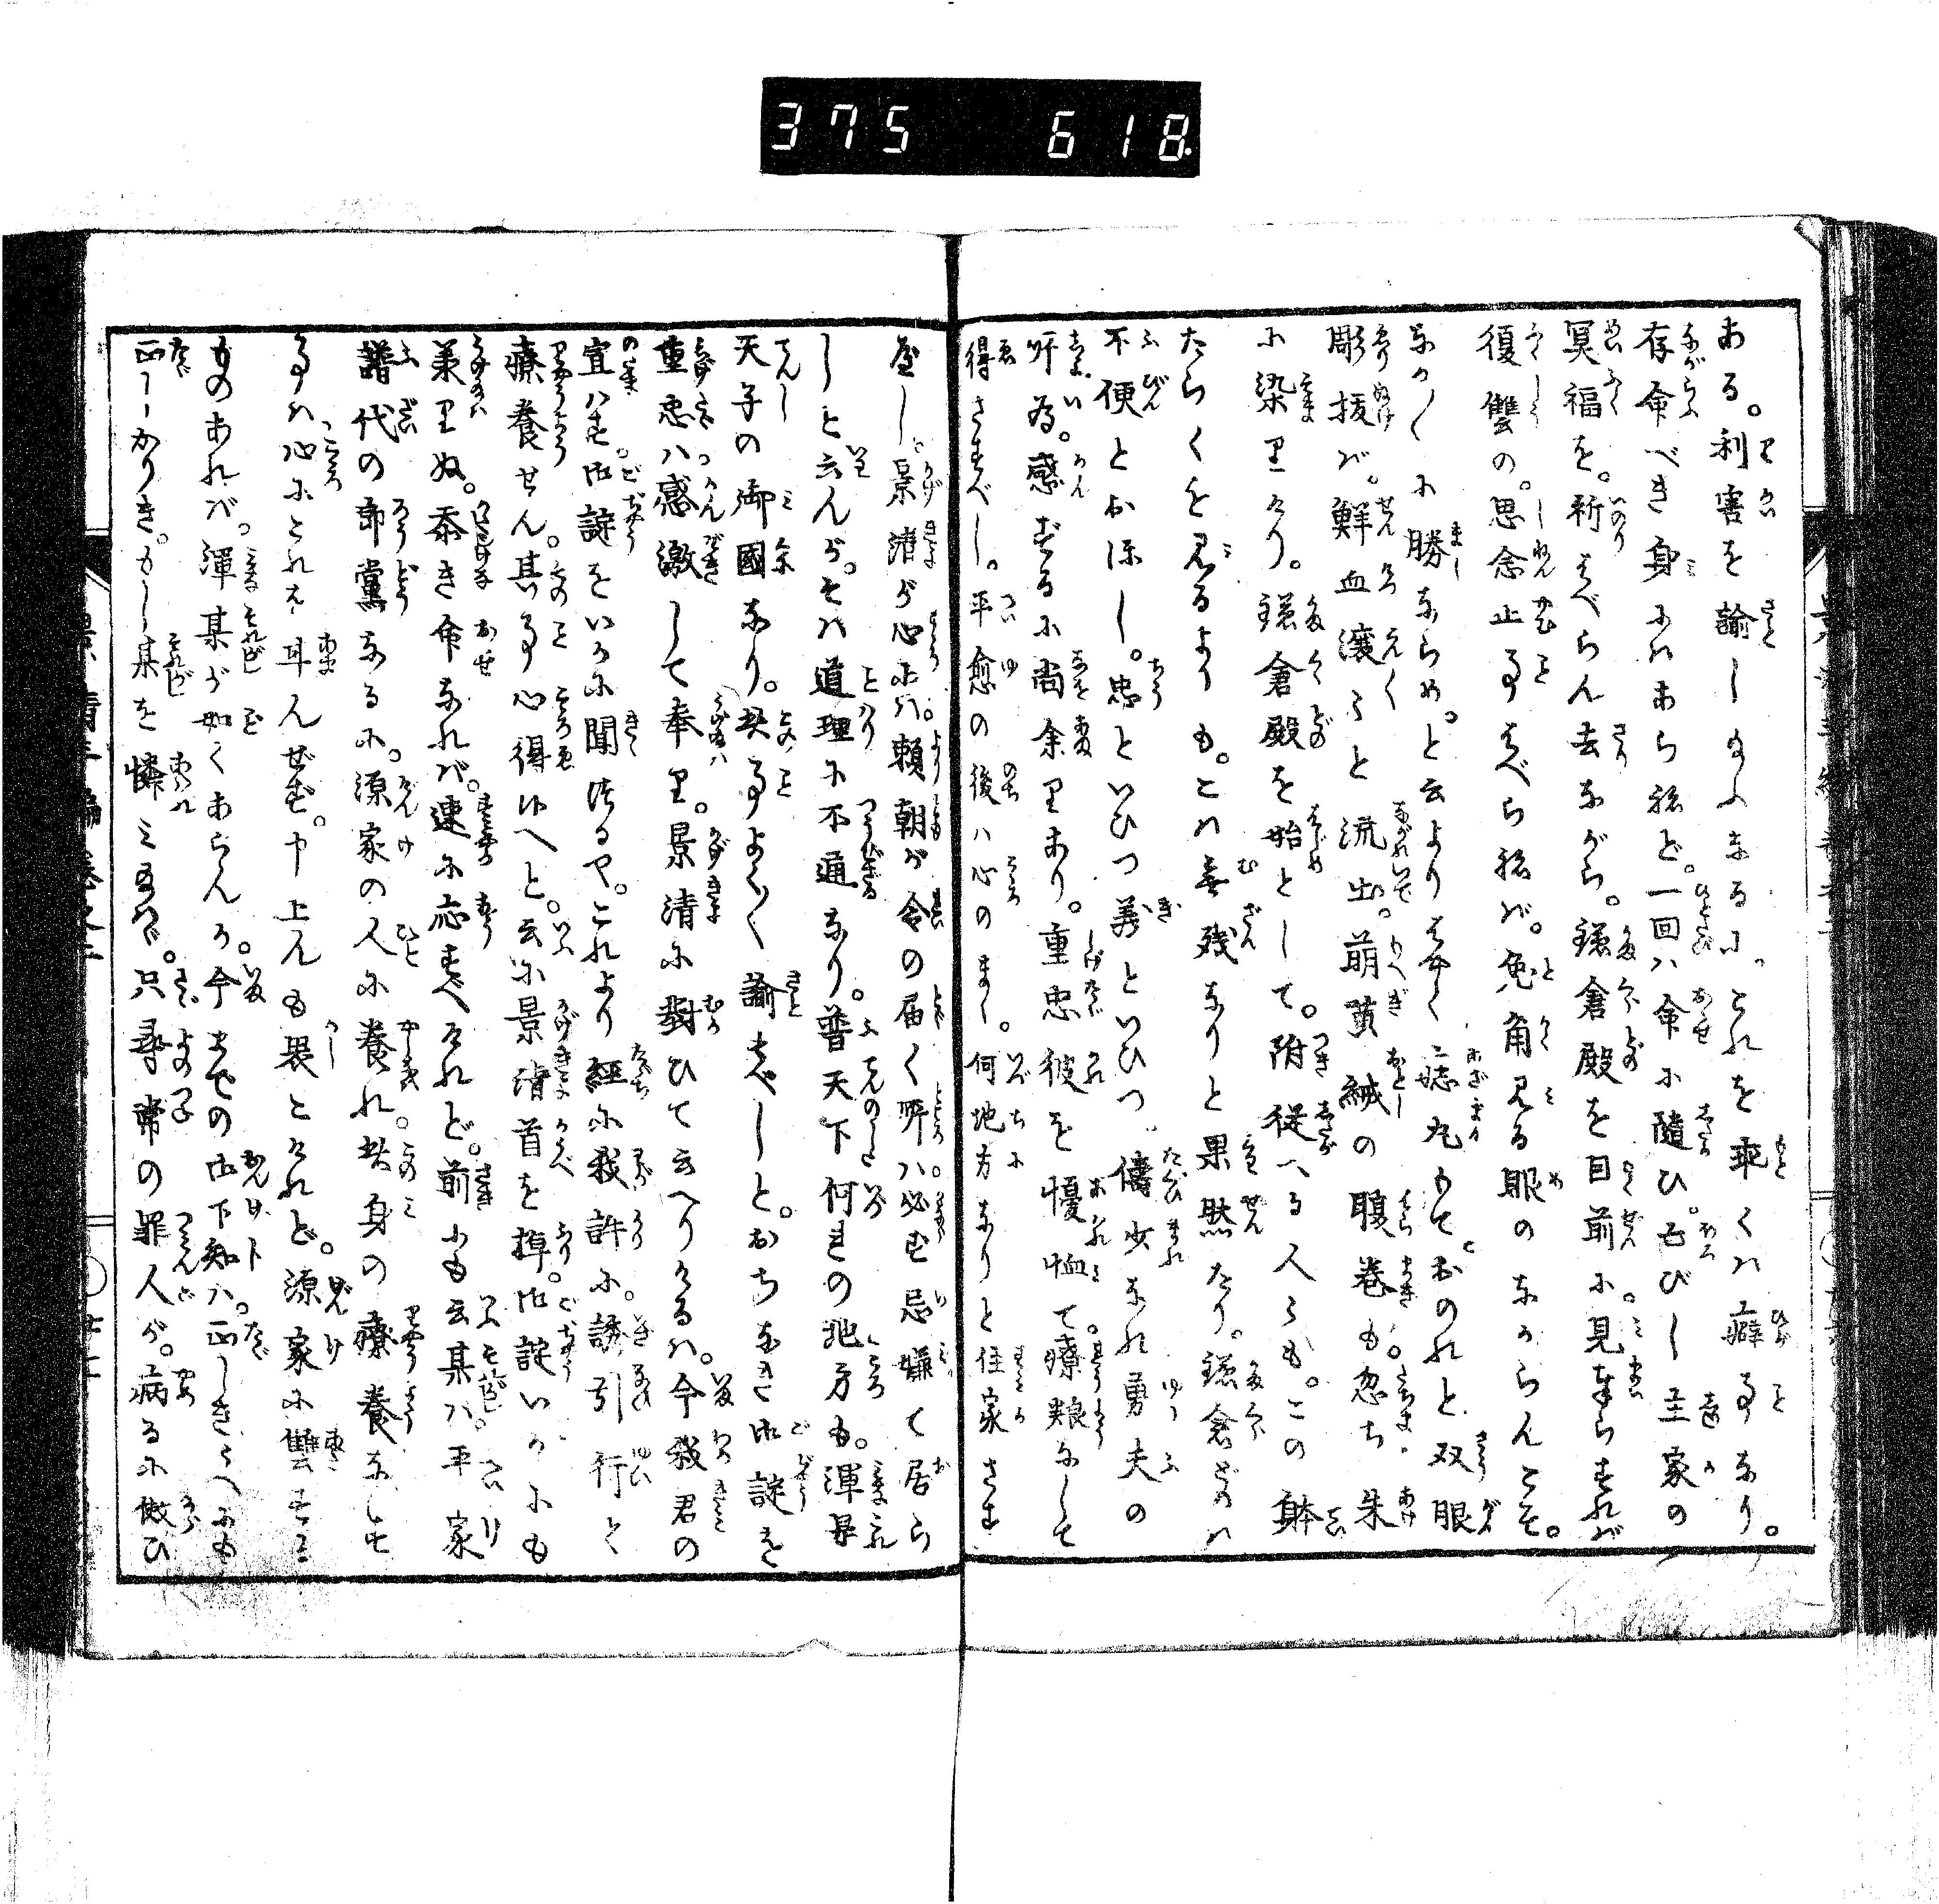 375 618
ある。利害を諭し給ふなるに。これを乖くは癖事なり。
存命べき身にはあらねど。一回は命に随ひ。亡びし主家の
冥福を。祈はべらん去ながら。鎌倉殿を目前に見奉らすれば
復讐の。思念止事はべらねば。兎角見る眼のなからんこそ。
なか〳〵に勝ならめ。と云よりはやく痣丸もて。おのれと双眼
彫抜ば。鮮血滾々と流出。萠黄縅の腹巻も。忽ち朱
に染りけり。鎌倉殿を始として。附従へる人々も。この身
たらくを見るよりも。こは無残なりと果然たり。鎌倉どのは
不便とおぼし。忠といひつ義といひつ。儔少なれ勇夫の
所為。感ずるに尚余りあり。重忠彼を憂恤て療粮にして
得さすべし。平愈の後は心のまゝ。何地方なりと住家さす
べし。景清が心には。頼朝が令の届く所は。必ず忌嫌て居ら
じと云んが。そは道理に不通なり。普天下何れの地方も。渾是
天子の御國なり。此事よく〳〵諭すべしと。おちなき御諚を
重忠は感激して奉り。景清に對ひて云へりけるは。今我君の
宣はす。御諚をいかに聞つるや。これより經に我許に。誘引行て
療養せん。其事心得ゆへと。云に景清首を掉。御諚いかにも
兼りぬ。忝き命なれば。速に応すべけれど。前にも云某は。平家
譜代の郎黨なるに。源家の人に養れ。此身の療養なしせ
事は心にこれを耳んぜず。申上んも畏こけれど。源家に讐する
ものあれば。渾某が如くあらんか。今までの御下知は。正しきうへにも
正しかりき。もし某を憐み給はゞ。只尋常の罪人が。病るに倣ひ